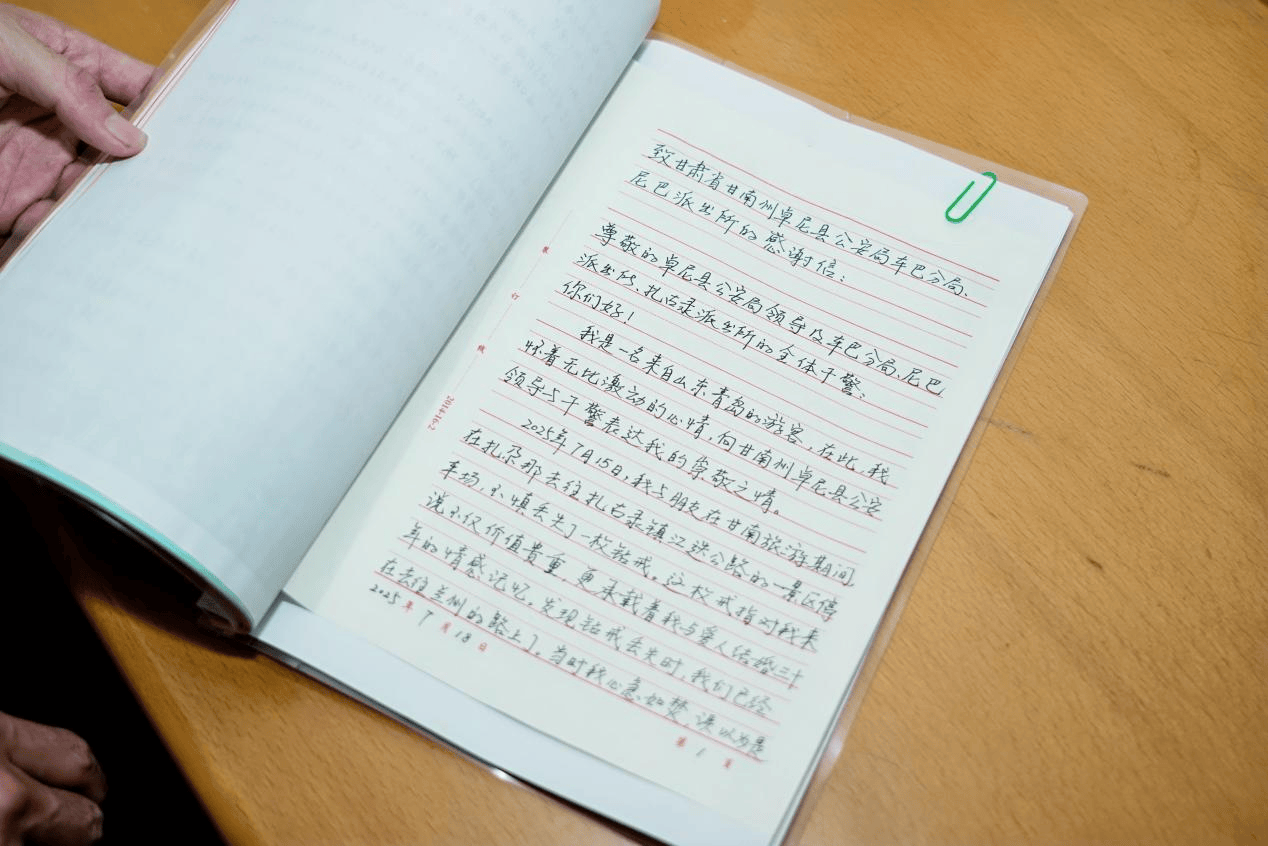 致甘肃省甘南州卓尼县公安局车巴分局、
尼巴派出所的感谢信：
尊敬的卓尼县公安局领导及车巴分局、尼巴
派出所、扎古录派出所的全体干警：
你们好！
我是一名来自山东青岛的游客，在此，我
怀着无比激动的心情，向甘南州卓尼县公安
领导与干警表达我的崇敬之情。
2025年7月15日，我与朋友在甘南旅游期间，
在扎尕那去往扎古录镇江迭公路的一景区停
车场，不慎丢失了一枚钻戒。这枚戒指对我来
说不仅价值贵重，更承载着我与爱人结婚三十
年的情感记忆。发现钻戒丢失时，我们已经
在去往兰州的路上了。当时我心急如焚，误以为是
2025年7月18日
第1页
装订线
2014·16·2